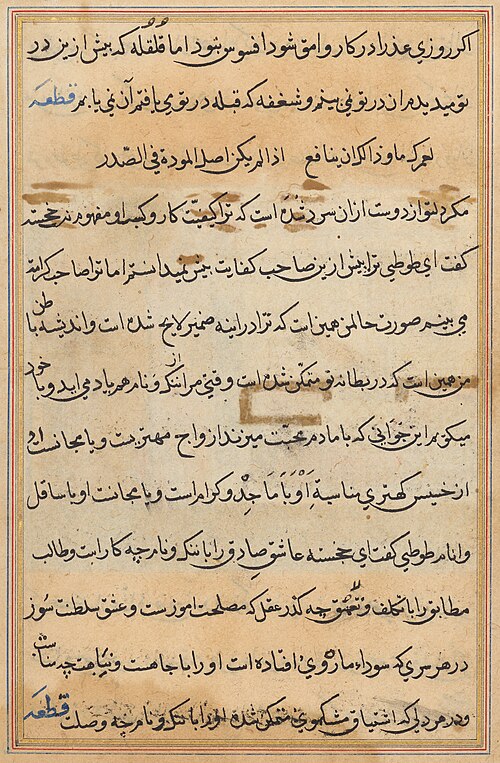 اکر روزي عذرا در کار وامق شود افسوس شود اما قلقله که پیش ازین در
تو میدیدم ان در تو نمي بینم و شغفه که قبله در تو مي یافتم آن نمي یابم قطعه
لعمرک ما وذاک ان ینافع اذا لم یکن اصل المودة في الصدر
مکر دلتو از دوست ازان سرد شده است که ترا کیفیت کار و کسب او مفهوم نه خجسته
کفت اي طوطي ترا پیش ازین صاحب کفایت میدانستم اما ترا صاحب کرامت
مي بینم صورت حال من همین است که ترا در اینه ضمیر لایح شده است و اندیشه باطن
من همین است که در بطانه تو متمکن شده است و قتي مرا از ننک و نام هم یاد مي اید و با خود
میکویم این جواني که با ما دم محبت میزند از واج مهتریت و یا مجانست او
از خسیس کهتري مناسبة او با ماجد و کرام است و یا مجانت او با ساقل
و انام طوطي کفت اي خجسته عاشق صادق را با ننک و نام چه کار است و طالب
مطابق را با تکلف و تعشق چه کذر عقل که مصلحت اموز ست و عشق سلطنت سوز
در هر سري که سوداء ماه روي افتاده است او را با جاهت و نباهت چه مناسبت
و در هر دلي که اشتیاق مشکموي متمکن شده او را با ننک و نام چه وصلت قطعه